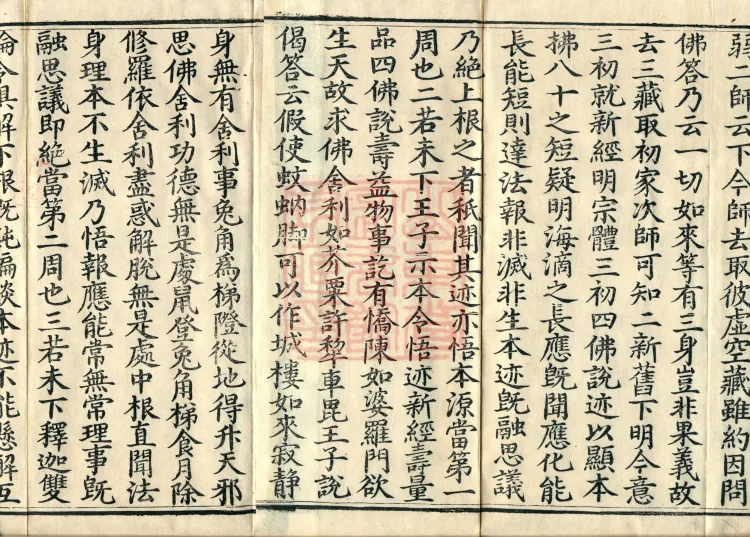 弱二師云下今師去取彼虛空藏雖約因問
佛答乃云一切如來等有三身豈非果義故
去三藏取初家次師可知二新舊下明今意
三初就新經明宗體三初四佛說迹以顯本
拂八十之短疑明海滴之長應旣聞應化能
長能短則達法報非滅非生本迹旣融思議
乃絕上根之者秖聞其迹亦悟本源當第一
周也二若未下王子示本令悟迹新經壽量
品四佛說壽益物事訖有憍陳如婆羅門欲
生天故求佛舍利如芥粟許犂車毘王子說
偈答云假使蚊蚋脚可以作城樓如來寂靜
身無有舍利事兔角爲梯隥從地得升天邪
思佛舍利功德無是處鼠登兔角梯食月除
修羅依舍利盡惑解脫無是處中根直聞法
身理本不生滅乃悟報應能常無常理事旣
融思議即絕當第二周也三若未下釋迦雙
論令具解下根旣鈍偏談本迹不能懸解互